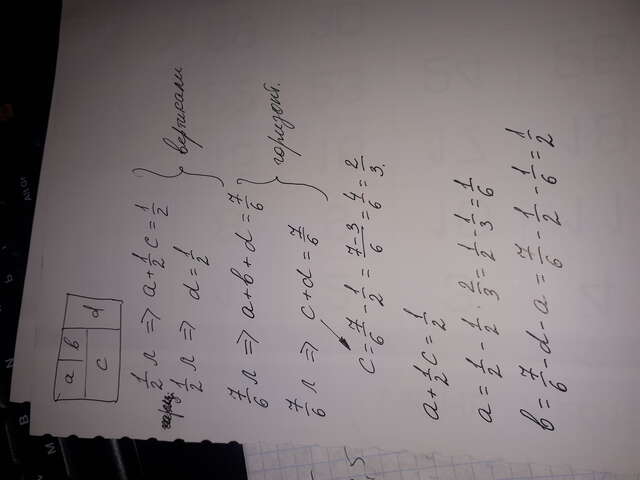 a b
c d
1/2 л => a + 1/2 c = 1/2
1/2 л => d = 1/2
вертикали
7/6 л => a + b + d = 7/6
7/6 л => c + d = 7/6
горизонт.
c = 7/6 - 1/2 = (7-3)/6 = 4/6 = 2/3.
a + 1/2 c = 1/2
a = 1/2 - 1/2 · 2/3 = 1/2 - 1/3 = 1/6
b = 7/6 - d - a = 7/6 - 1/2 - 1/6 = 1/2
Alt Gr
M
B
N
5